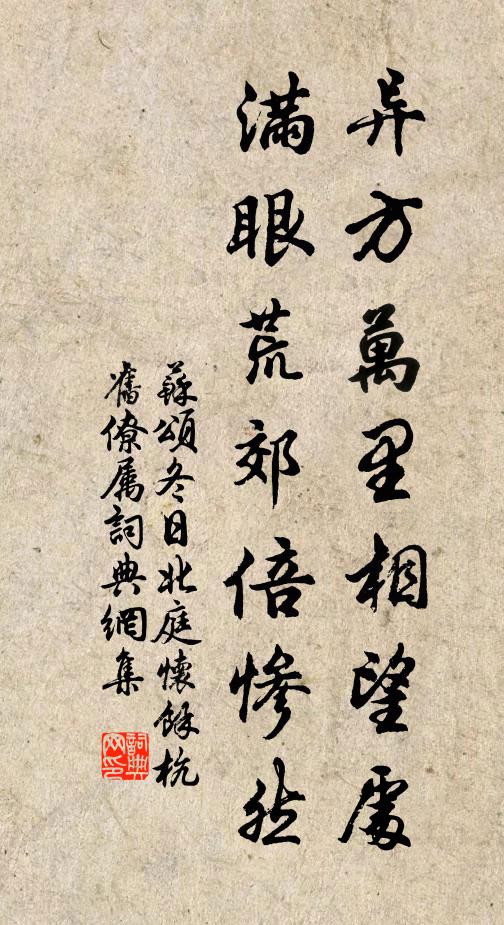 异方萬里相望處
滿眼荒郊倍慘然
蘇頌冬日北庭懷餘杭
舊僚属詞典網集
詞典網印